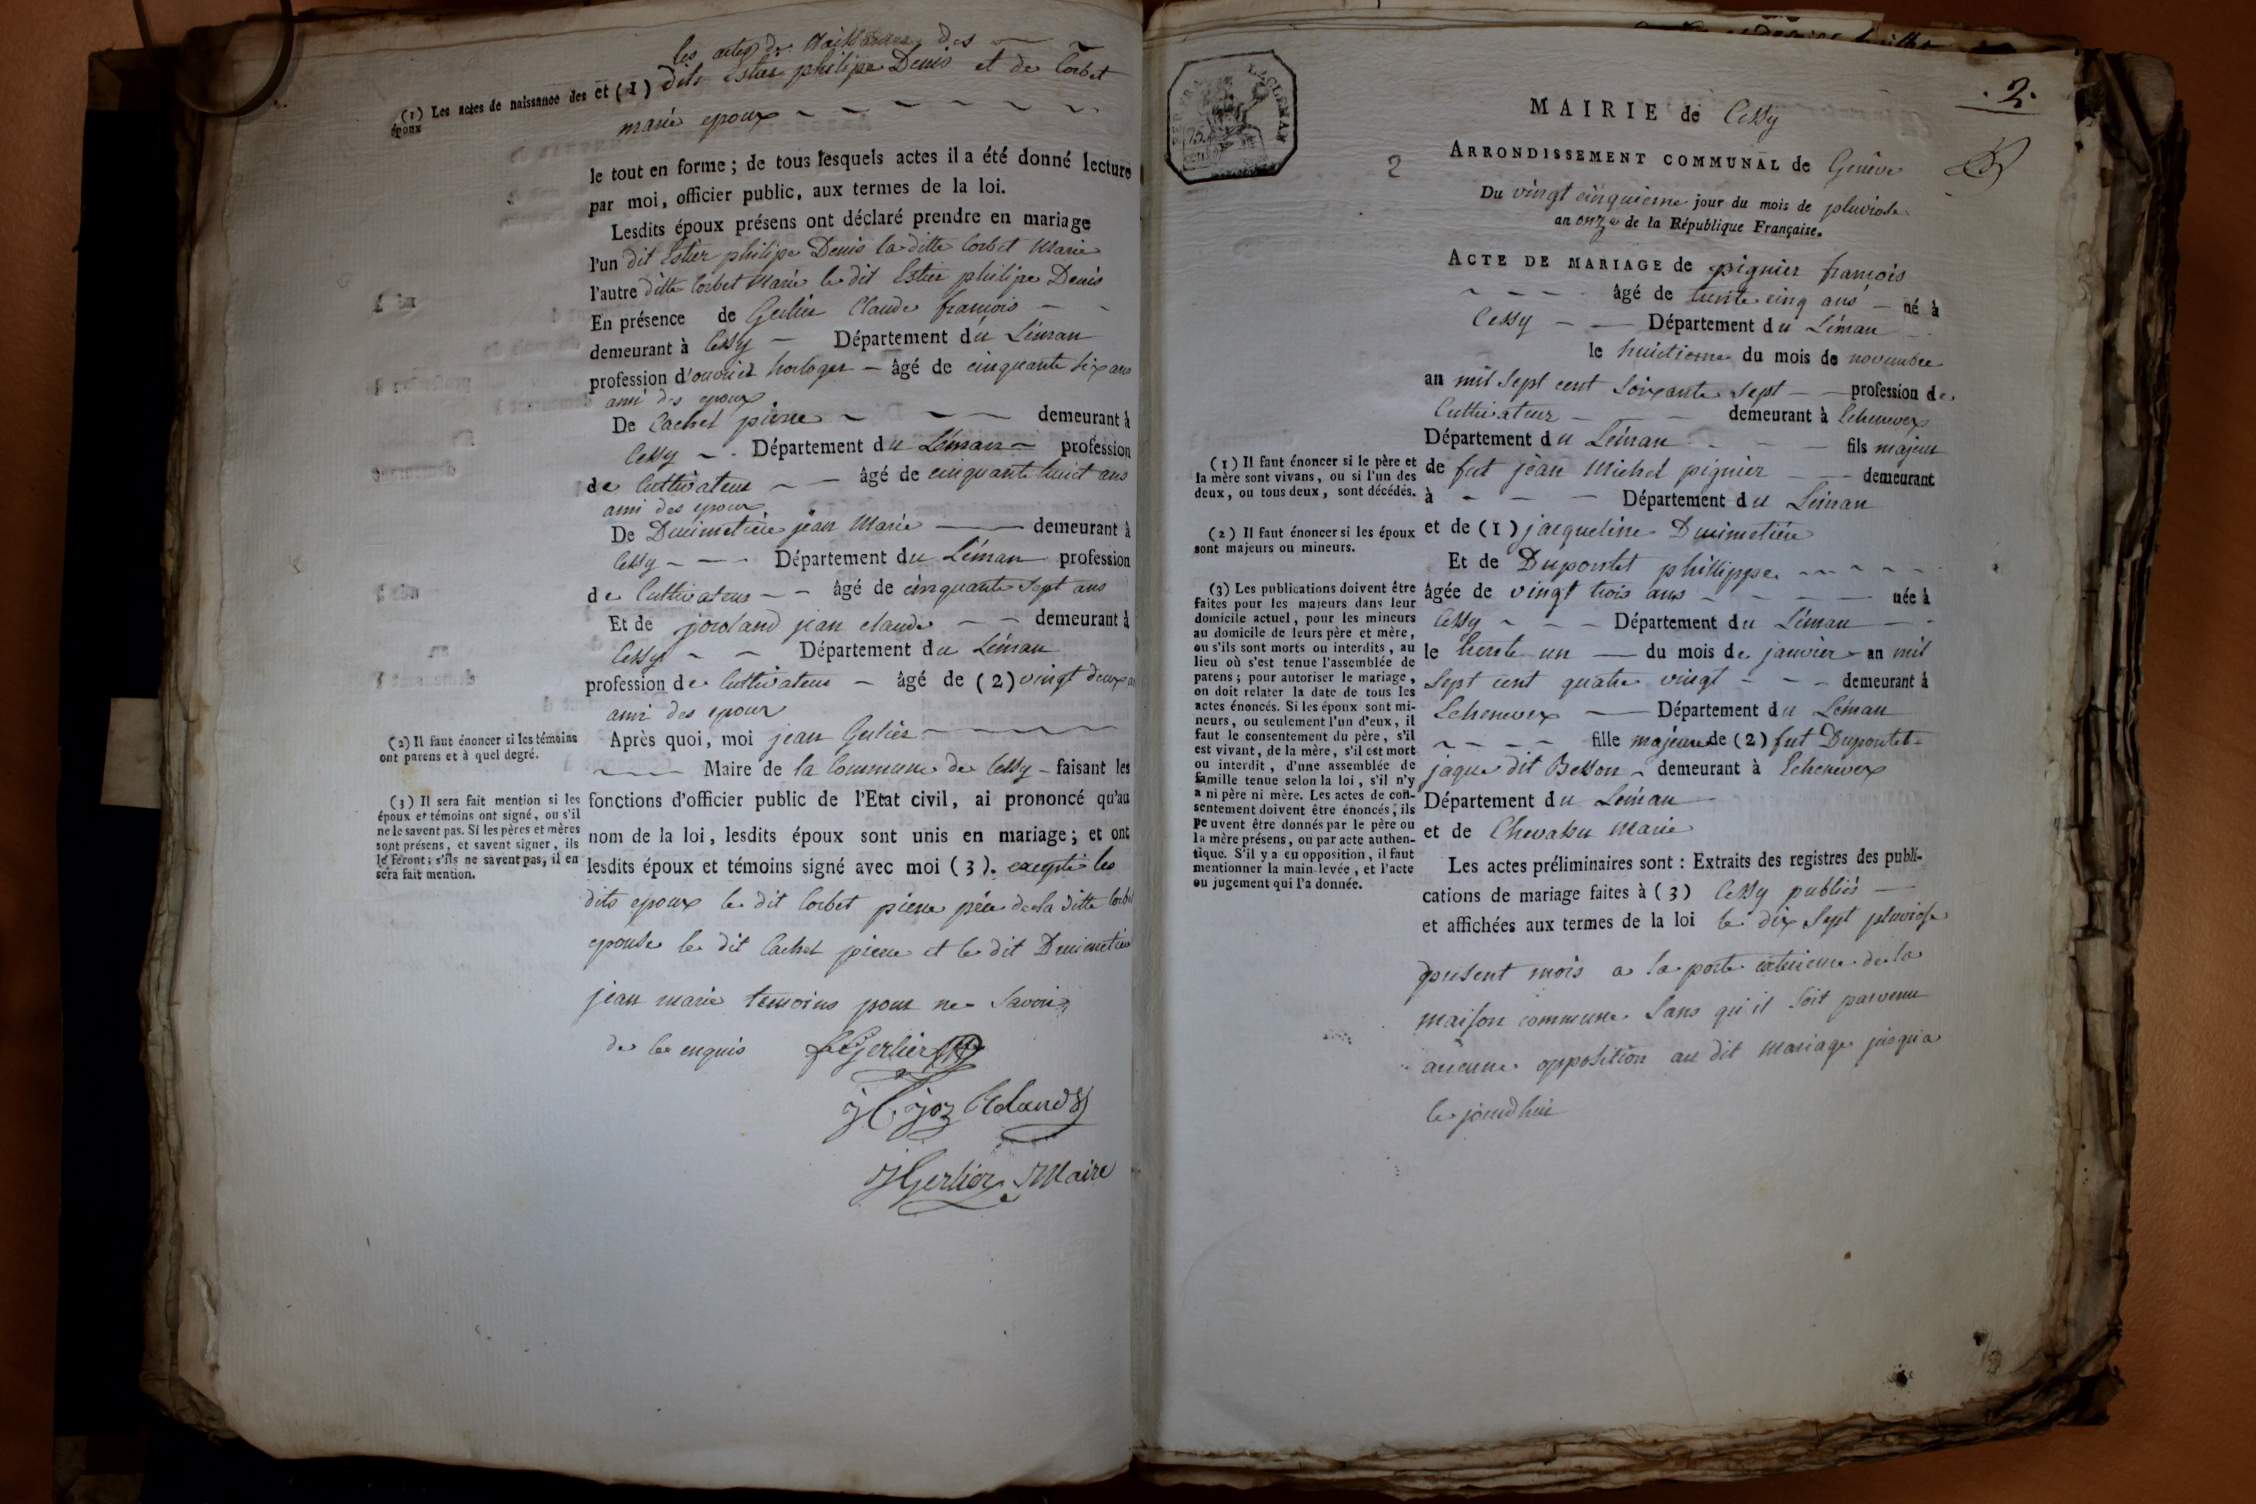 les actes de Naissance des
(1) Les actes de naissance des
époux
et (1) dits Estier philipe Denis et de Corbet
marie epoux
le tout en forme ; de tous lesquels actes il a été donné lecture
par moi, officier public, aux termes de la loi.
Lesdits époux présens ont déclaré prendre en mariage
l'un dit Estier philipe Denis la ditte Corbet Marie
l'autre ditte Corbet Marie le dit Estier philipe Denis
En présence de Gerlier Claude francois
demeurant à Cessy Département du Léman
profession d'ouvrier horloger âgé de cinquante six ans
ami des epoux
De Cachet pierre demeurant à
Cessy Département du Léman profession
de Cultivateur âgé de cinquante huit ans
ami des epoux
De Duimetière jean Marie demeurant à
Cessy Département du Léman profession
de Cultivateur âgé de cinquante sept ans
Et de jean claude demeurant à
Cessy Département du Léman
profession de Cultivateur âgé de (2) vingt deux
ami des epoux
(2) Il faut énoncer si les témoins
ont parens et à quel degré.
Après quoi, moi jean Gerlier
Maire de la Commune de Cessy faisant les
(3) Il sera fait mention si les
époux et témoins ont signé, ou s'il
ne le savent pas. Si les pères et mères
sont présens, et savent signer, ils
le feront ; s'ils ne savent pas, il en
sera fait mention.
fonctions d'officier public de l'Etat civil, ai prononcé qu'au
nom de la loi, lesdits époux sont unis en mariage ; et ont
lesdits époux et témoins signé avec moi (3). excepté les
dits epoux le dit Corbet pierre père de la ditte Corbet
epouse le dit Cachet pierre et le dit Duimetière
jean marie temoins pour ne Savoir
de ce enquis Gerlier
J Gerlier Maire
.2.
2
MAIRIE de Cessy
ARRONDISSEMENT COMMUNAL de Genève
Du vingt cinquieme jour du mois de pluviose
an onze de la République Française.
ACTE DE MARIAGE de pignier francois
âgé de trente cinq ans né à
Cessy Département du Léman
le huictieme du mois de novembre
an mil sept cent soixante sept profession de
Cultivateur demeurant à Echenevex
Département du Léman fils majeur
de fut jean Michel pignier demeurant
à Département du Léman
et de (1) jacqueline Duimetière
(1) Il faut énoncer si le père et
la mère sont vivans, ou si l'un des
deux, ou tous deux, sont décédés.
(2) Il faut énoncer si les époux
sont majeurs ou mineurs.
Et de Dupontet phillippe
âgée de vingt trois ans née à
Cessy Département du Léman
le trente un du mois de janvier an mil
sept cent quatre vingt demeurant à
Echenevex Département du Léman
fille majeure de (2) fut Dupontet
jaque dit Besson demeurant à Echenevex
Département du Léman
et de Marie
(3) Les publications doivent être
faites pour les majeurs dans leur
domicile actuel, pour les mineurs
au domicile de leurs père et mère,
ou s'ils sont morts ou interdits, au
lieu où s'est tenue l'assemblée de
parens ; pour autoriser le mariage,
on doit relater la date de tous les
actes énoncés. Si les époux sont mi-
neurs, ou seulement l'un d'eux, il
faut le consentement du père, s'il
est vivant, de la mère, s'il est mort
ou interdit, d'une assemblée de
famille tenue selon la loi, s'il n'y
a ni père ni mère. Les actes de con-
sentement doivent être énoncés, ils
peuvent être donnés par le père ou
la mère présens, ou par acte authen-
tique. S'il y a eu opposition, il faut
mentionner la main-levée, et l'acte
ou jugement qui l'a donnée.
Les actes préliminaires sont : Extraits des registres des publi-
cations de mariage faites à (3) Cessy publiés
et affichées aux termes de la loi le dix sept pluviose
present mois a la porte exterieure de la
maison commune sans qu'il soit parvenu
aucune opposition au dit mariage jusqu'a
ce jourdhui